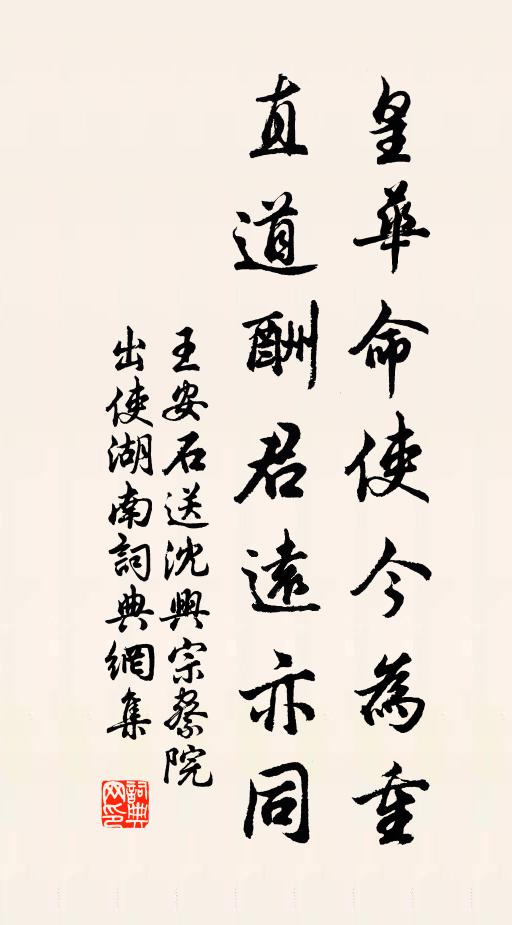 皇華命使今為重
直道酬君遠亦同
王安石送沈興宗察院
出使湖南詞典網集
詞典網印